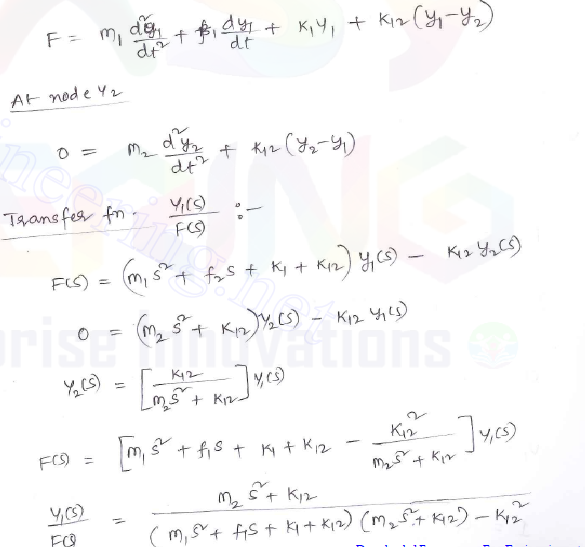 F = m₁ d²y₁/dt² + f₁ dy₁/dt + K₁y₁ + K₁₂(y₁-y₂)
At node Y₂
0 = m₂ d²y₂/dt² + K₁₂(y₂-y₁)
Transfer fn. Y₁(s)/F(s) :-
F(s) = (m₁s² + f₂s + K₁ + K₁₂) y₁(s) - K₁₂ y₂(s)
0 = (m₂s² + K₁₂) y₂(s) - K₁₂ y₁(s)
prise Innovations
Y₂(s) = [K₁₂/(m₂s² + K₁₂)] y₁(s)
F(s) = [m₁s² + f₁s + K₁ + K₁₂ - K₁₂²/(m₂s² + K₁₂)] Y₁(s)
Y₁(s)/F(s) = (m₂s² + K₁₂)/((m₁s² + f₁s + K₁ + K₁₂)(m₂s² + K₁₂) - K₁₂²)